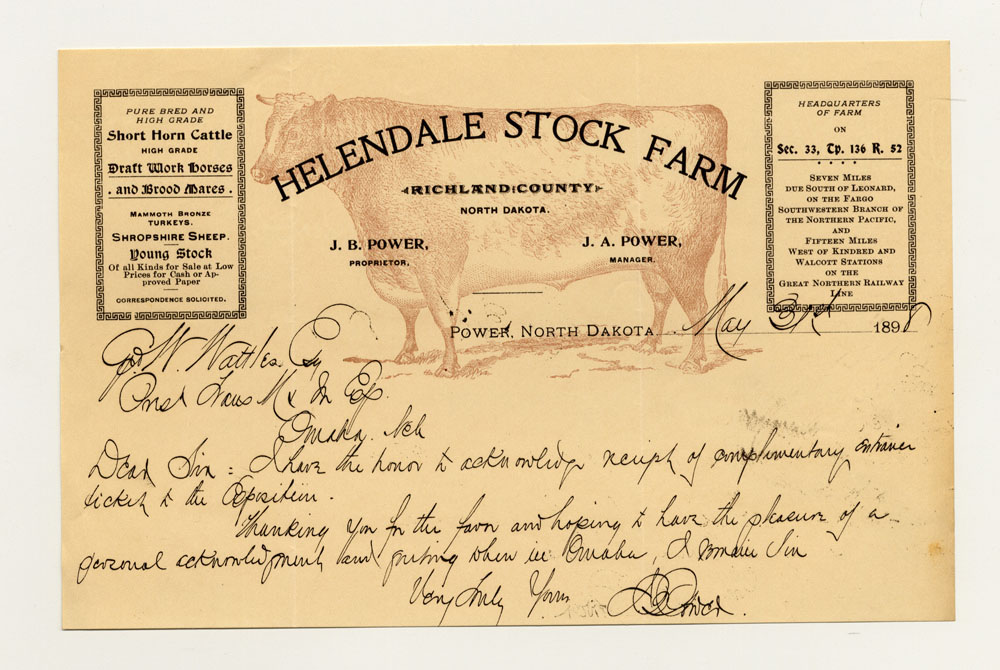 PURE BRED AND
HIGH GRADE
Short Horn Cattle
HIGH GRADE
Draft Work Horses
and Brood Mares.
MAMMOTH BRONZE
TURKEYS.
SHROPSHIRE SHEEP.
Young Stock
Of all Kinds for Sale at Low
Prices for Cash or Ap-
proved Paper
CORRESPONDENCE SOLICITED.
HELENDALE STOCK FARM
RICHLAND COUNTY
NORTH DAKOTA.
J. B. POWER,
PROPRIETOR.
J. A. POWER,
MANAGER.
HEADQUARTERS
OF FARM
ON
Sec. 33, Tp. 136 R. 52
SEVEN MILES
DUE SOUTH OF LEONARD,
ON THE FARGO
SOUTHWESTERN BRANCH OF
THE NORTHERN PACIFIC,
AND
FIFTEEN MILES
WEST OF KINDRED AND
WALCOTT STATIONS
ON THE
GREAT NORTHERN RAILWAY
LINE
POWER, NORTH DAKOTA. May 31st 1898
W. Wattles Esq
Prest Trans M & In Ex.
Omaha Neb
Dear Sir: I have the honor to acknowledge receipt of complimentary entrance
ticket to the Exposition.
Thanking you for the favor and hoping to have the pleasure of a
personal acknowledgment and greeting when in Omaha, I remain Sir
Very Truly Yours
J B Power.